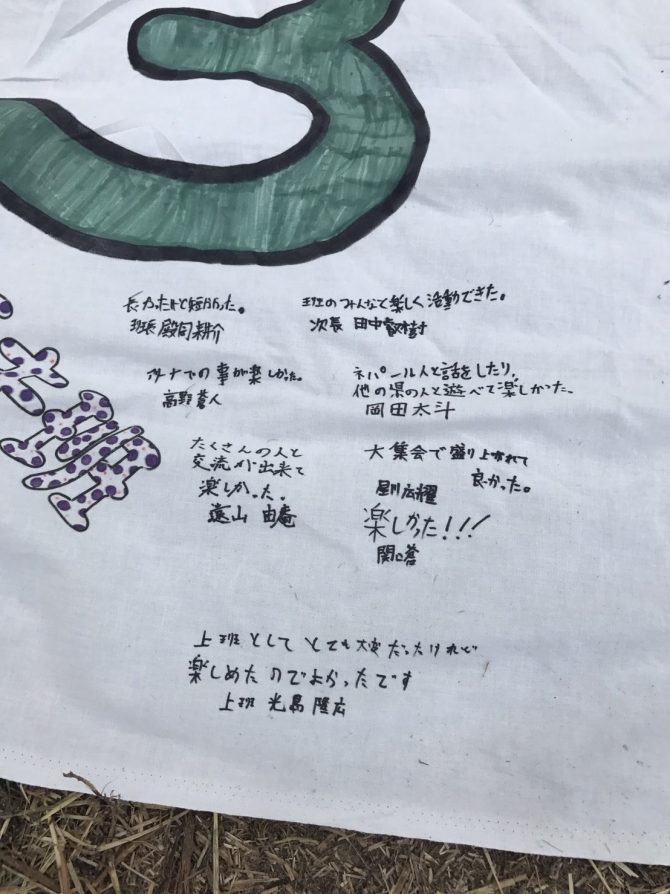 3
班
長かったけど短かった。
班長 殿司耕介
班のみんなと楽しく活動できた。
次長 田中敬樹
での事が楽しかった。
高野蒼人
ネパール人と話をしたり、
他の県の人と遊べて楽しかった。
岡田太斗
たくさんの人と
交流が出来て
楽しかった。
遠山 由庵
大集会で盛り上がれて
良かった。
広耀
楽しかった!!!
関口蒼
上班としてとても大変だったけれど
楽しめたのでよかったです
上班 光島隆広